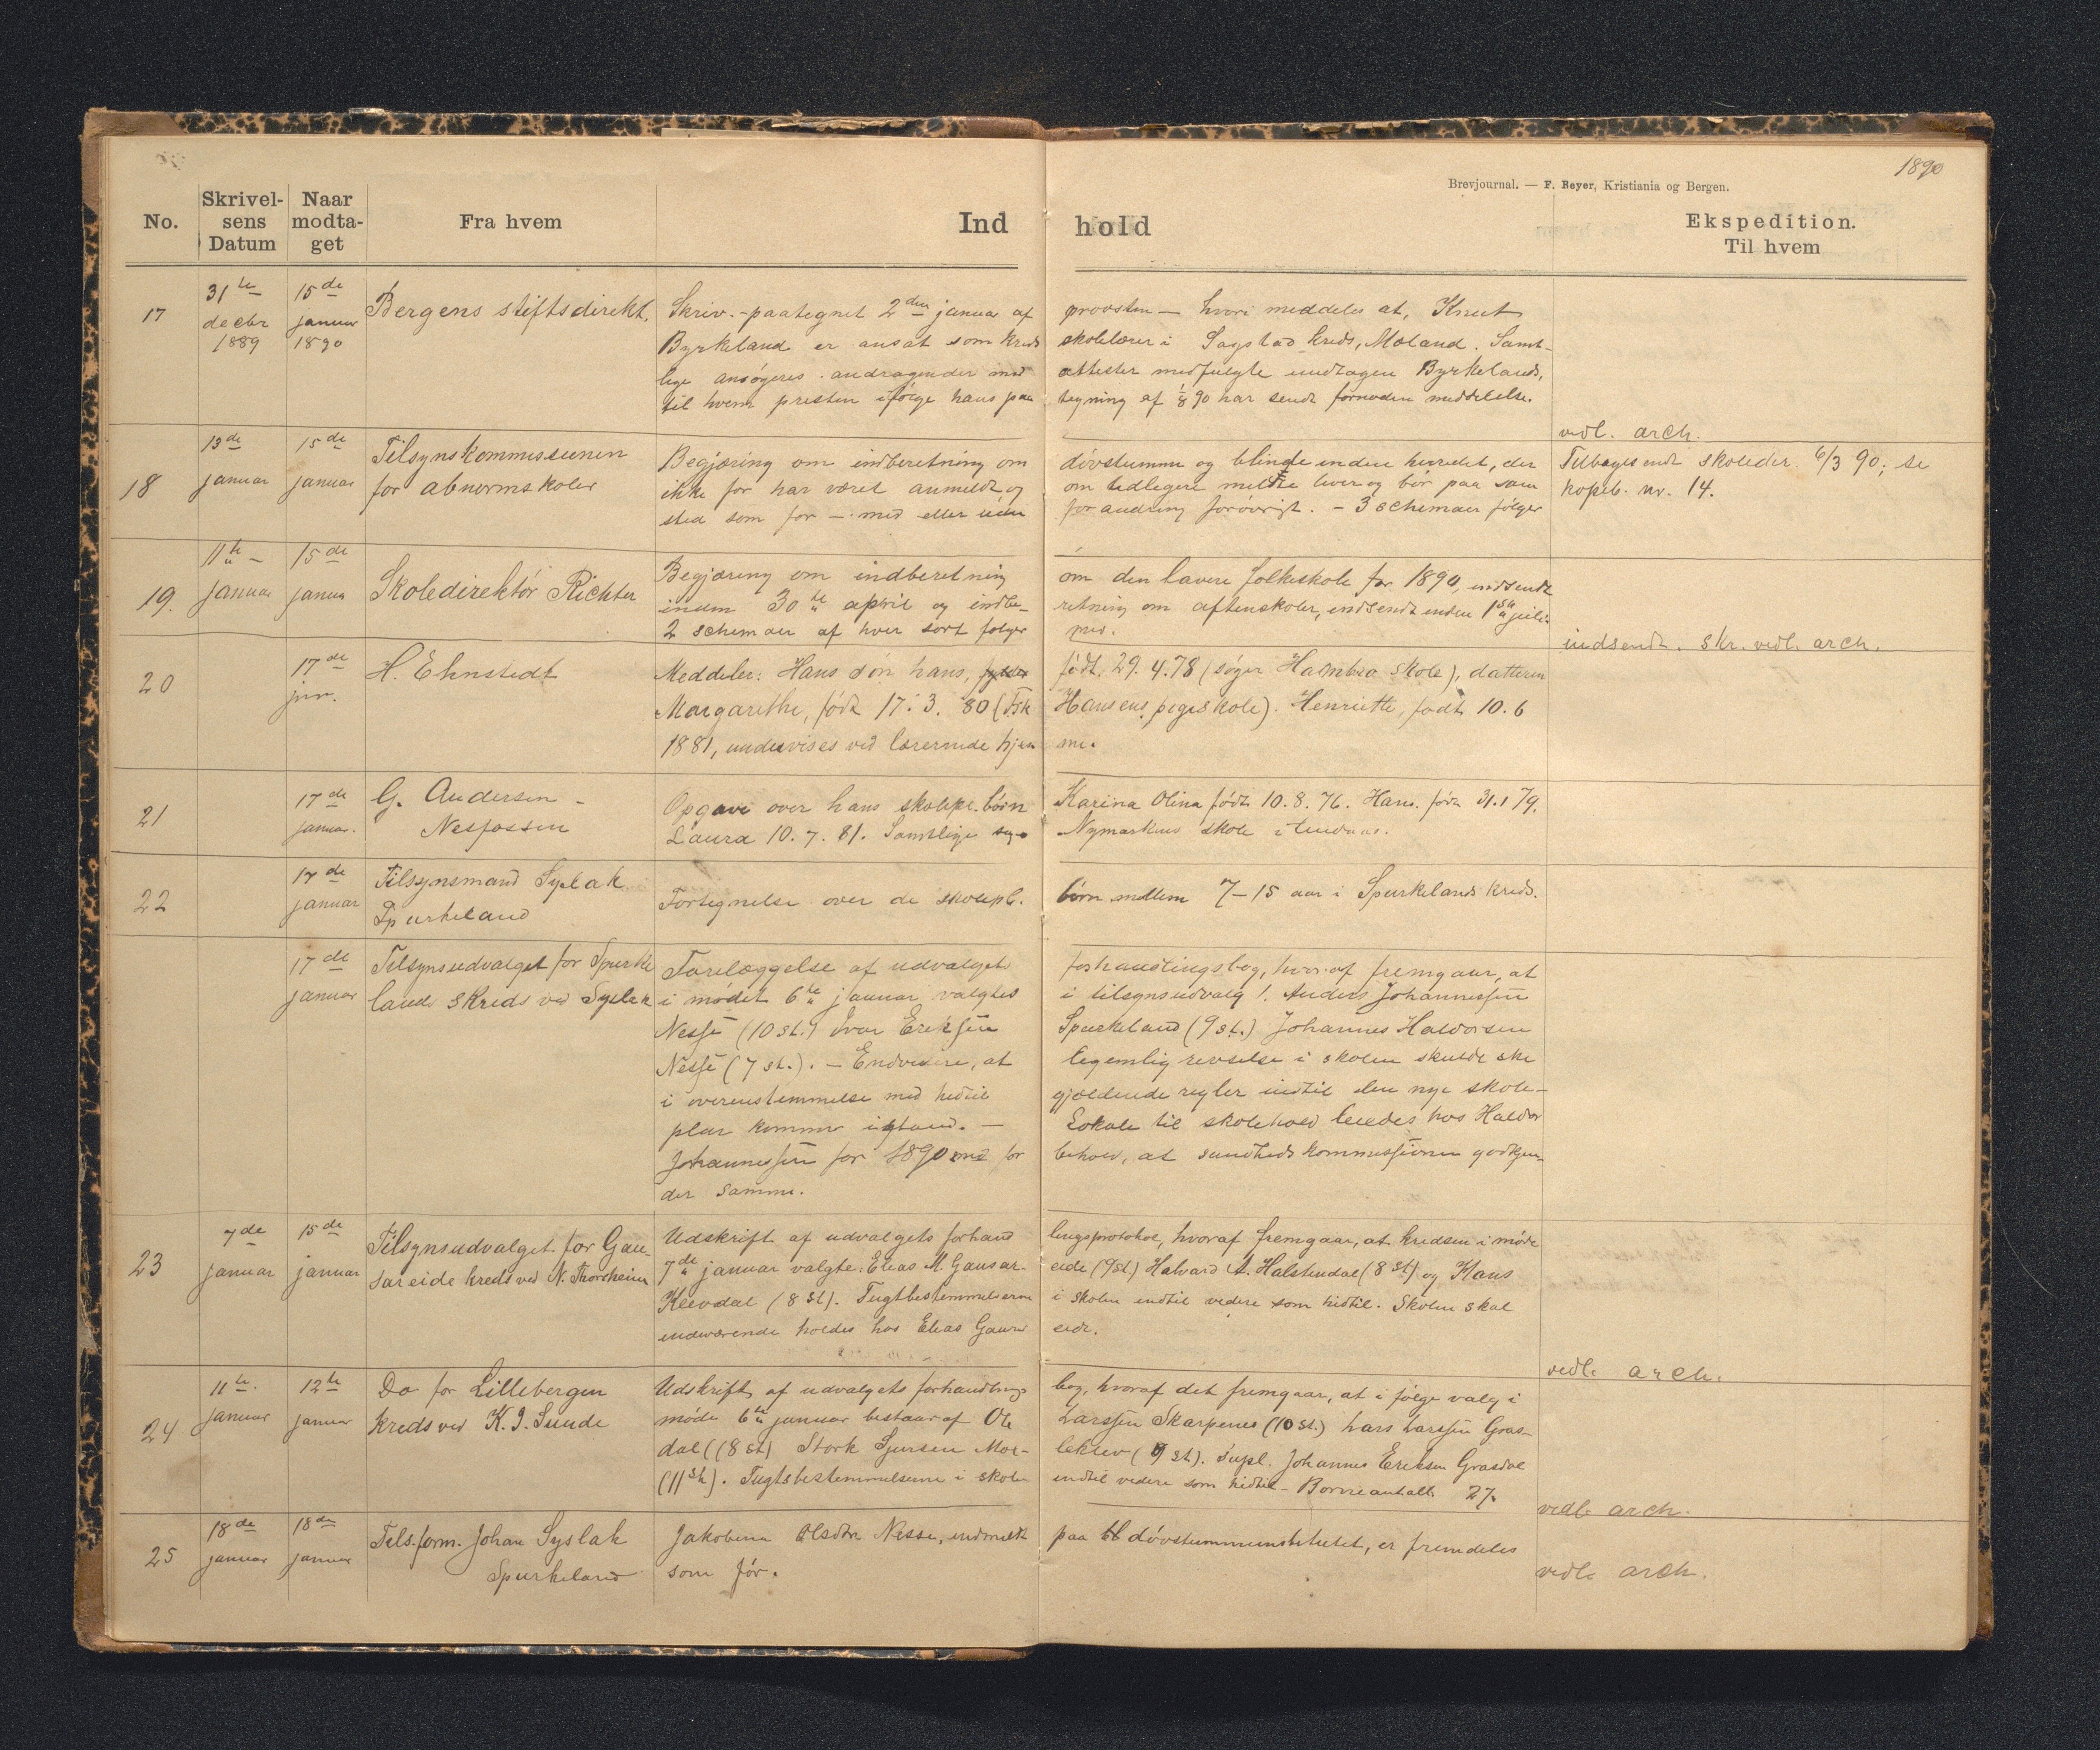 1890
Brevjournal. — F. Beyer, Kristiania og Bergen.
No.
Skrivelsens Datum
Naar modtaget
Fra hvem
Indhold
Ekspedition.
Til hvem
17
31te decbr 1889
15de januar 1890
Bergens stiftsdirekt.
Skriv. - paategnet 2den januar af provsten — hvori meddeles at, Knut
Byrkeland er ansat som kreds skolelærer i Sagstad kreds, Mæland. Samt-
lige ansøgeres andragender med attester medfulgte undtagen Byrkelands,
til hvem presten ifølge hans paategning af 1/8 90 har sendt fornøden meddelelse.
vedl. arch.
18
13de januar
15de januar
Tilsynskommissionen
for abnormskoler
Begjæring om indberetning om døvstumme og blinde inden herredet, der
ikke før har været anmeldt og om tidligere meldte lever og bor paa sam
sted som før — med eller uden forandring forøvrigt. - 3 schemaer følger
Tilbagesendt skoledir. 6/3 90; se
kopib. nr. 14.
19.
11te januar
15de januar
Skoledirektør Richter
Begjæring om indberetning om den lavere folkeskole for 1890, indsendt
inden 30te april og indberetning om aftenskoler, indsendt inden 1ste juli.
2 schemaer af hver sort følger med.
indsendt. skr. vedl. arch.
20
17de jnr.
H. Ehnstedt
Meddeler: Hans søn hans, født. 29. 4. 78 (søger Hambro skole), datteren
Margarethe, født 17. 3. 80 (Frk Hansens pigeskole). Henriette, født 10. 6
1881, undervises ved lærerinde hjemme.
21
17de januar.
G. Andersen -
Nesfossen
Opgave over hans skolepl. børn Karina Olina født 10. 8. 76. Hans. født 31. 1 79.
Laura 10. 7. 81. Samtlige søge Nymarkens skole i
22
17de januar
Tilsynsmand Syslak
Spurkeland
Fortegnelse over de skolepl. børn mellem 7-15 aar i Spurkelands kreds.
17de januar
Tilsynsudvalget for Spurke
lands kreds ved Syslak
Forelæggelse af udvalgets forhandlingsbog, hvoraf fremgaar, at
i mødet 6te januar valgtes i tilsynsudvalg !. Anders Johannessen
Nesse (10 st.) Ivar Eriksen Spurkeland (9 st.) Johannes Haldorsen
Nesse (7 st.). — Endvidere, at legemlig revselse i skolen skulde ske
i overenstemmelse med hidtil gjældende regler indtil den nye skole-
plan kommer istand. — Lokale til skolehold leiedes hos Haldor
Johannessen for 1890 med forbehold, at sundhedskommissionen godkjen-
der samme.
23
7de januar
15de januar
Tilsynsudvalget for Gau-
sareide kreds ved N. Thorsheim
Udskrift af udvalgets forhandlingsprotokol, hvoraf fremgaar, at kredsen i møde
7de januar valgte: Elias M. Gausar-eide (9 st) Halvard A. Halstendal (8 st) og Hans
Kleivdal (8 st). Tugtbestemmelserne i skolen indtil videre som hidtil. Skolen skal
indeværende holdes hos Elias Gausareide.
vedl. arch.
24
11te januar
12te januar
Do for Lillebergen
kreds ved K. J. Sunde
Udskrift af udvalgets forhandlingsbog, hvoraf det fremgaar, at i følge valg i
møde 6te januar bestaar af Ole Larssen Skarpenes (10 st.) Lars Larssen Gras-
dal (8 st) Stork Sjursen Mor-lekslev (9 st). Supl. Johannes Eriksen Grasdal
(11 st). Tugtsbestemmelserne i skolen indtil videre som hidtil - Børneantalt 27.
vedl. arch.
25
18de januar
18de januar
Tils.form. Johan Syslak
Spurkeland
Jakobina Olsdtr Nesse, indmeldt paa døvstummeinstitutet, er fremdeles
som før.
vedl. arch.